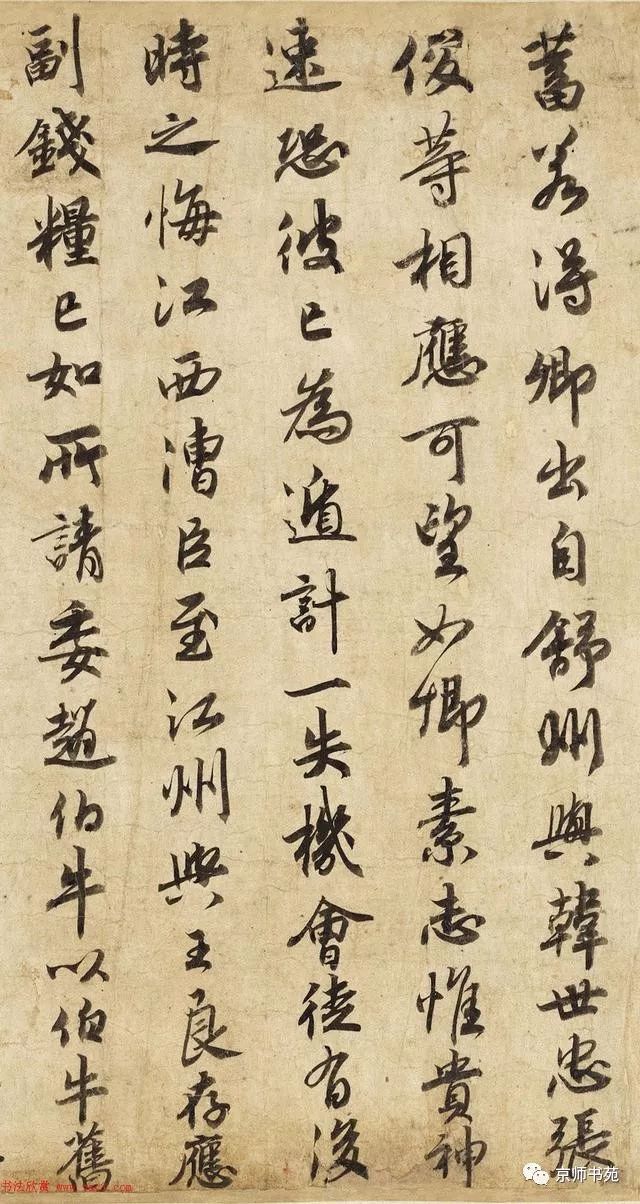 蓄若得卿出自舒州與韓世忠張
俊等相應可望如卿素志惟貴神
速恐彼已為遁計一失機會徒有後
時之悔江西漕臣至江州與王良存應
副錢糧已如所請委趙伯牛以伯牛舊
京师书苑
书法欣赏